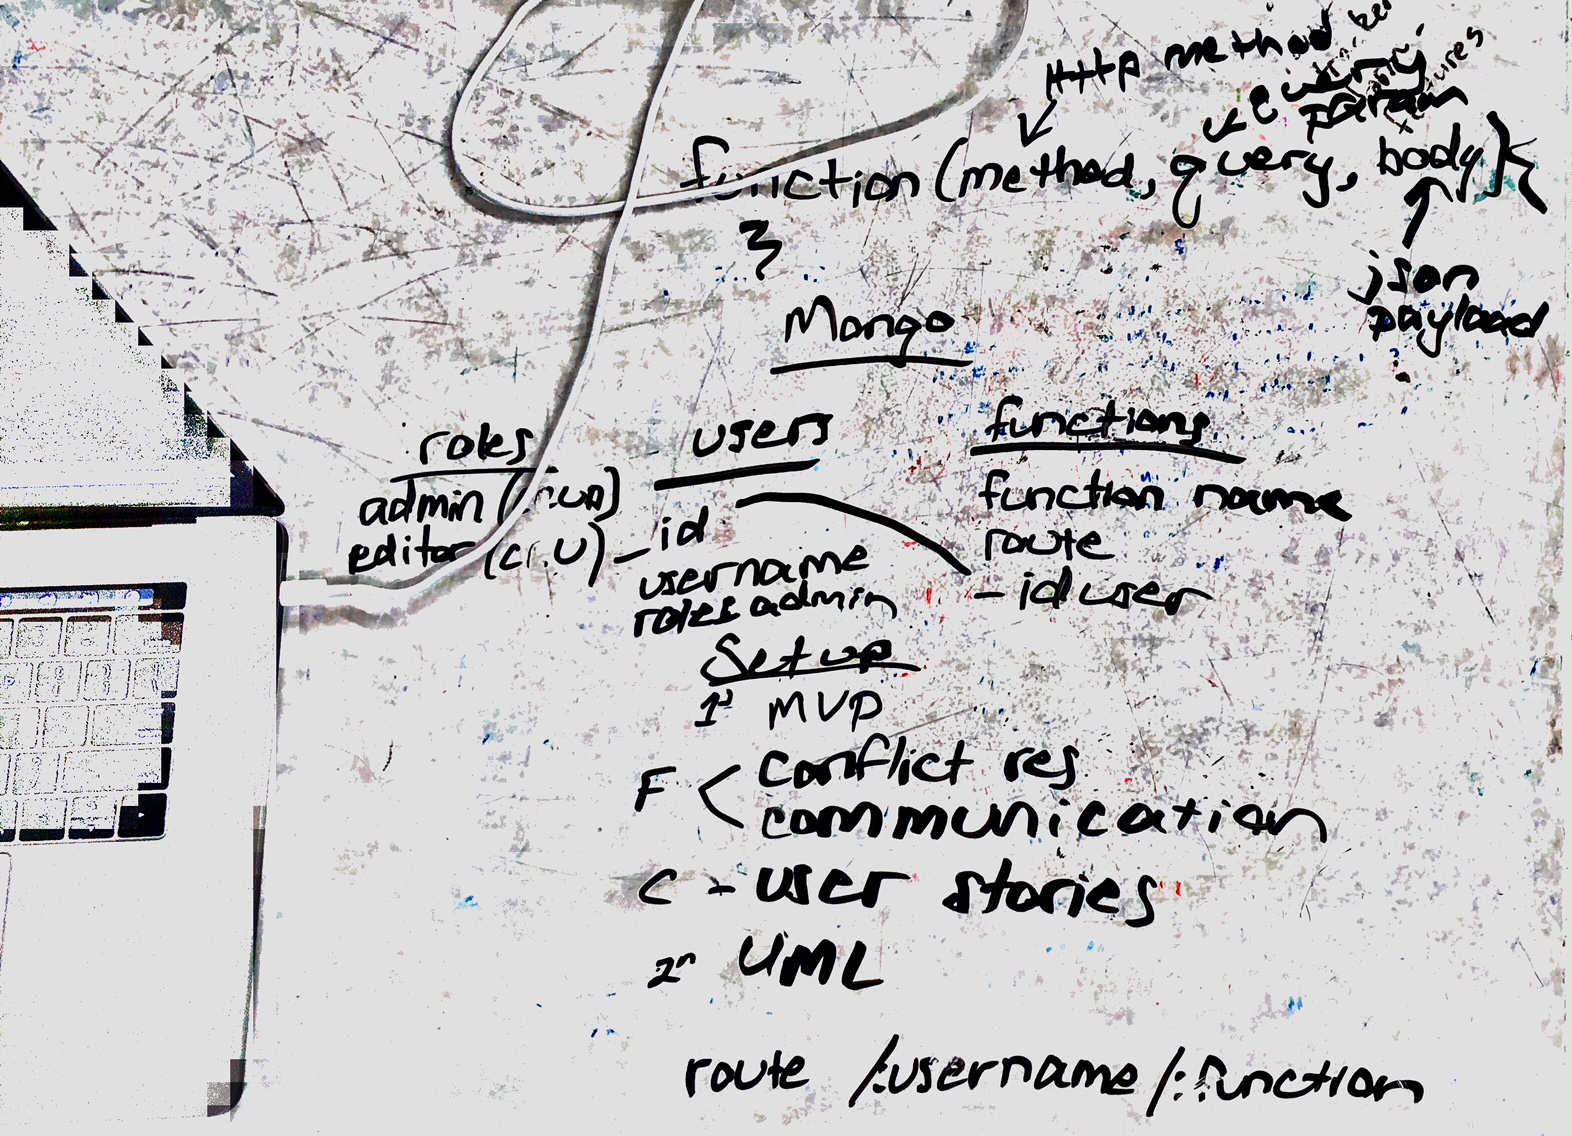 HTTP method
query
param
function (method, query, body) {
}
json
payload
Mongo
roles
admin
editor
users
_id
username
roles admin
functions
function name
route
_id user
Setup
MVP
F < conflict res
communication
C - user stories
UML
route /:username/:function